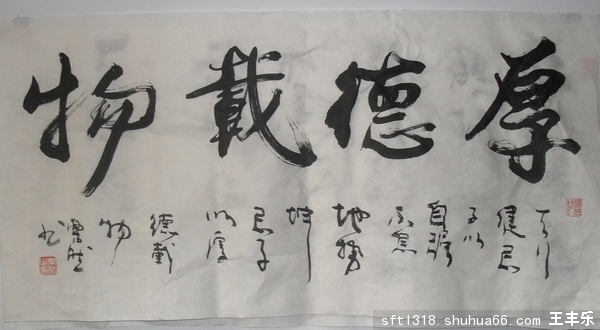 厚德載物
天行
健君
子以
自强
不息
地勢
坤
君子
以厚
德載
物
书
sftl318.shuhua66.com 王丰乐